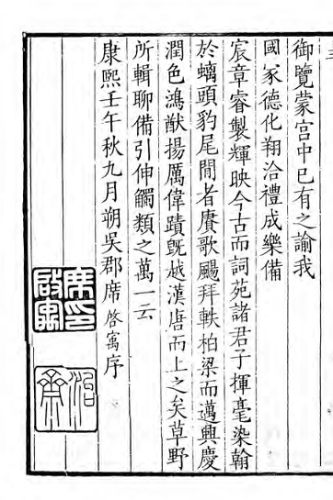 御覽蒙宫中已有之諭我
國家德化翔洽禮成樂備
宸章睿製輝映今古而詞苑諸君子揮毫染翰
於螭頭豹尾間者賡歌颺拜軼柏梁而邁興慶
潤色鴻猷揚厲偉蹟旣越漢唐而上之矣草野
所輯聊備引伸觸類之萬一云
康熙壬午秋九月朔吳郡席啓寓序
席啓寓印
治齋